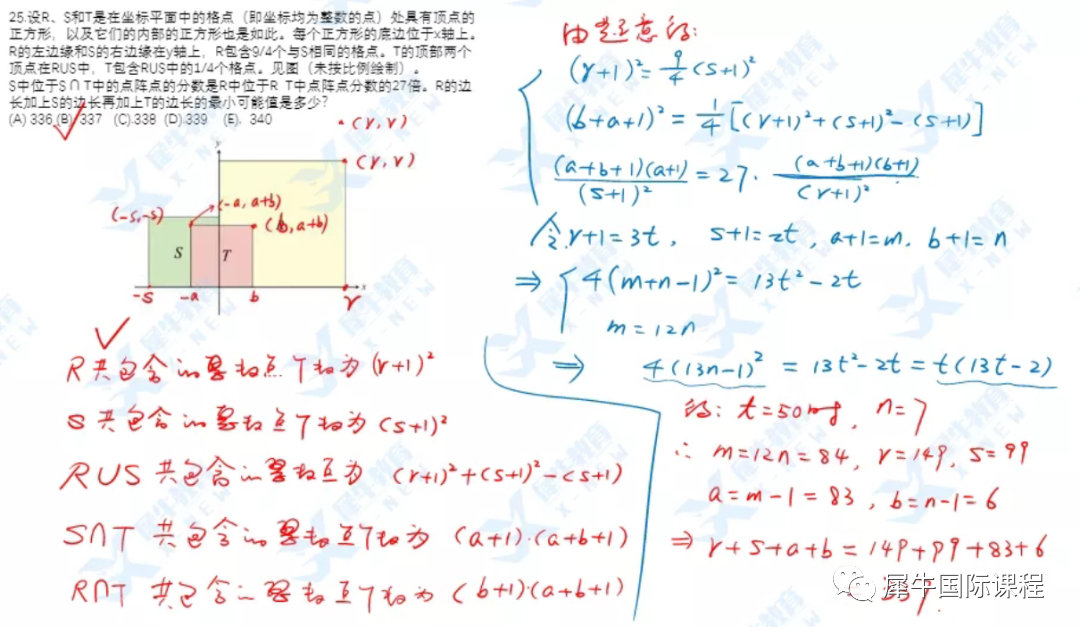 25.设R、S和T是在坐标平面中的格点（即坐标均为整数的点）处具有顶点的
正方形，以及它们的内部的正方形也是如此。每个正方形的底边位于x轴上。
R的左边缘和S的右边缘在y轴上，R包含9/4个与S相同的格点。T的顶部两个
顶点在RUS中，T包含RUS中的1/4个格点。见图（未按比例绘制）。
S中位于S∩T中的点阵点的分数是R中位于R T中点阵点分数的27倍。R的边
长加上S的边长再加上T的边长的最小可能值是多少?
(A) 336 (B) 337 (C).338 (D).339 (E). 340
y
(r,r)
(r,r)
(-a,a+b)
(-s,-s)
(b,a+b)
S T
x
-s -a b r
R共包含的整数点个数为(r+1)²
S共包含的整数点个数为(s+1)²
RUS共包含的整数点为 (r+1)²+(s+1)²-(s+1)
S∩T 共包含的整数点个数为 (a+1)·(a+b+1)
R∩T 共包含的整数点个数为 (b+1)·(a+b+1)
由题意得:
(r+1)²=9/4(s+1)²
(b+a+1)²=1/4[(r+1)²+(s+1)²-(s+1)]
(a+b+1)(a+1)/(s+1)²=27·(a+b+1)(b+1)/(r+1)²
令r+1=3t, s+1=2t, a+1=m, b+1=n
⇒ 4(m+n-1)²=13t²-2t
m=12n
⇒ 4(13n-1)²=13t²-2t=t(13t-2)
得: t=50时, n=7
∴ m=12n=84, r=149, s=99
a=m-1=83, b=n-1=6
⇒ r+s+a+b=149+99+83+6
犀牛国际课程
犀牛教育
X-NEW